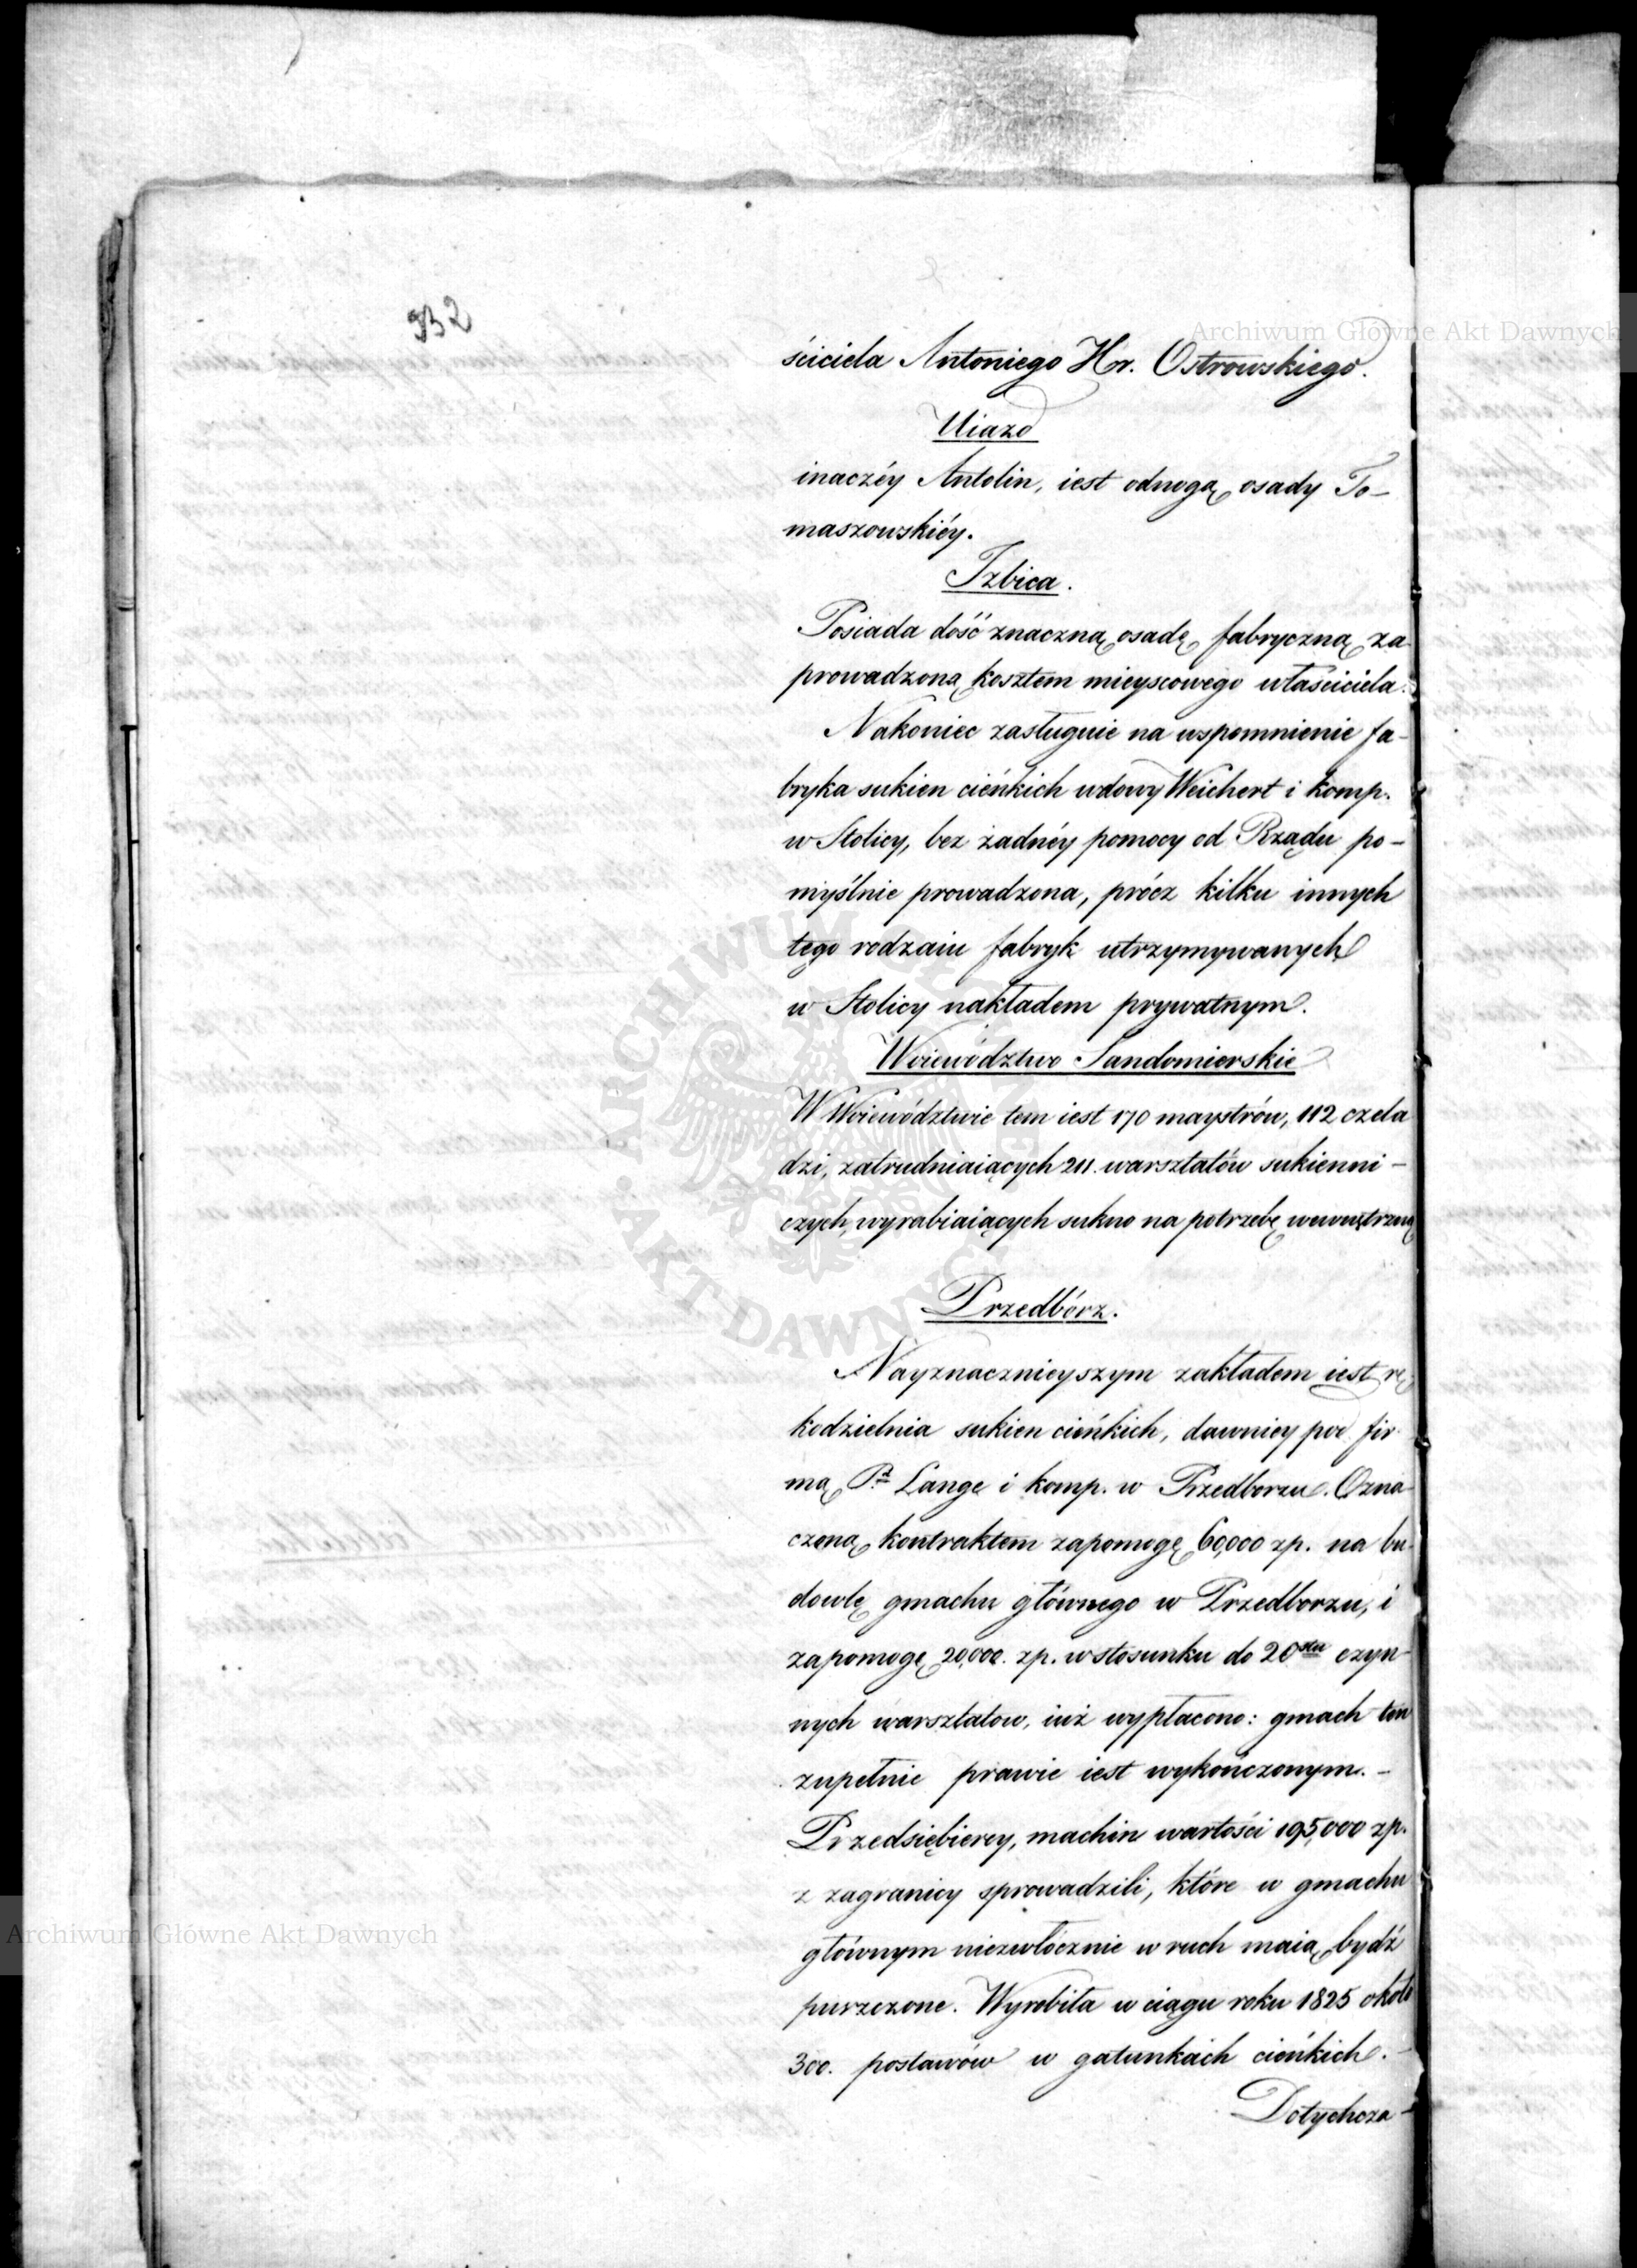 932
ściciela Antoniego Hr. Ostrowskiego.
Uiazd
inaczéy Antolin, iest odnogą osady To–
maszowskiéy.
Izbica.
Posiada dość znaczną osadę fabryczną za
prowadzoną kosztem mieyscowego właściciela.
Nakoniec zasługuie na wspomnienie fa–
bryka sukien cieńkich wdowy Weichert i komp.
w Stolicy, bez żadnéy pomocy od Rządu po–
myślnie prowadzona, prócz kilku innych
tego rodzaiu fabryk utrzymywanych
w Stolicy nakładem prywatnym.
Woiewództwo Sandomierskie
W Woiewództwie tem iest 170 maystrów, 112 czela
dzi, zatrudniaiących 211. warsztatów sukienni–
czych, wyrabiaiących sukno na potrzebę wewnętrzną
Przedbórz.
Nayznacznieyszym zakładem iest rę
kodzielnia sukien cieńkich, dawniey pod fir
mą Lange i komp. w Przedborzu. Ozna
czoną kontraktem zapomogę 60,000 zp. na bu
dowlę gmachu głównego w Przedborzu, i
zapomogę 20,000. zp. w stosunku do 20stu czyn–
nych warsztatow, iuż wypłacono: gmach ten
zupełnie prawie iest wykończonym. –
Przedsiębiercy, machin wartości 195,000 zp.
z zagranicy sprowadzili, które w gmachu
głównym niezwłócznie w ruch maią bydź
purzczone. Wyrobiła w ciągu roku 1825 około
300. postawów w gatunkach cieńkich. –
Dotychcza–
Archiwum Główne Akt Dawnych
Archiwum Główne Akt Dawnych
Archiwum Główne Akt Dawnych